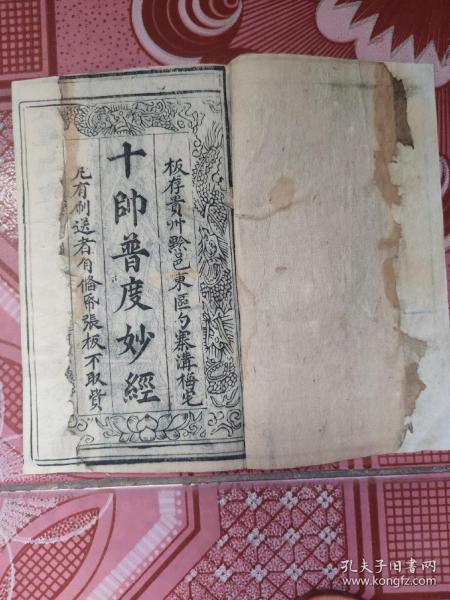 板存貴州黔邑東區勺寨溝梅宅
十帥普度妙經
凡有刷送者自偹紙張板不取貲
孔夫子旧书网
www.kongfz.com